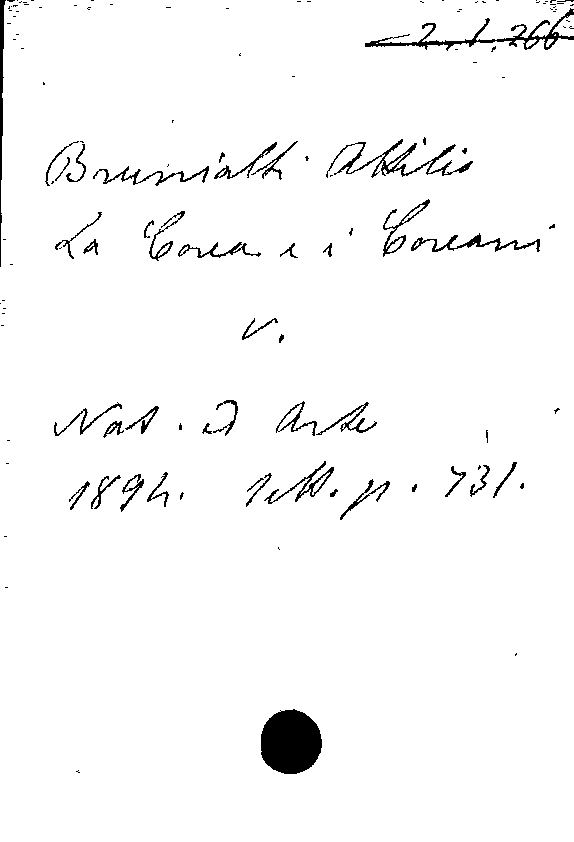 2.1.266
Brunialti Attilio
La Corea e i Coreani
v.
Nat. ed Arte
1894. Sett. p. 731.